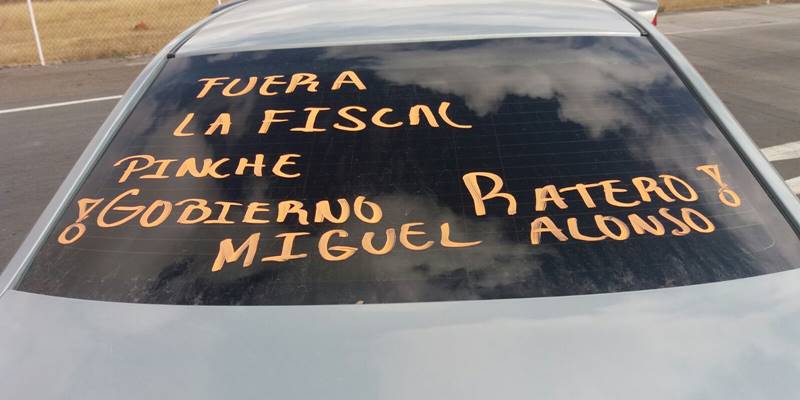 FUERA
LA FISCAL
PINCHE
¡GOBIERNO RATERO!
MIGUEL ALONSO